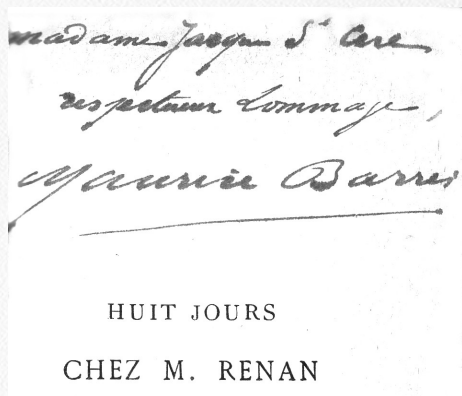 madame Jacques St Cere
respectueux hommage,
Maurice Barrès
HUIT JOURS
CHEZ M. RENAN